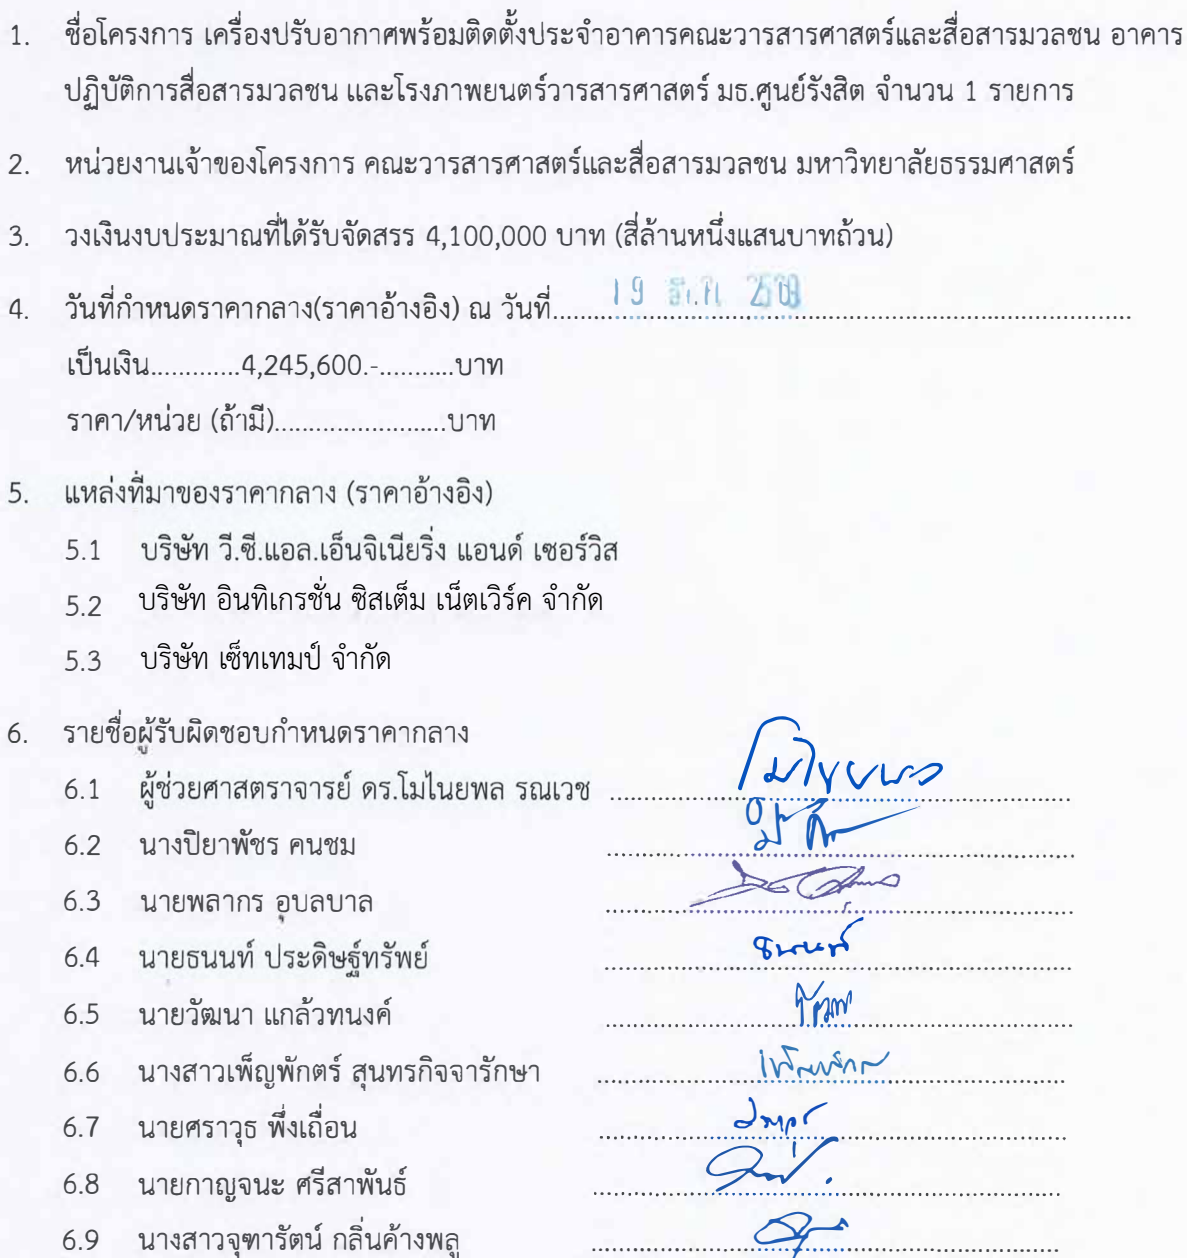 1. ชื่อโครงการ เครื่องปรับอากาศพร้อมติดตั้งประจำอาคารคณะวารสารศาสตร์และสื่อสารมวลชน อาคาร
ปฏิบัติการสื่อสารมวลชน และโรงภาพยนตร์วารสารศาสตร์ มธ.ศูนย์รังสิต จำนวน 1 รายการ
2. หน่วยงานเจ้าของโครงการ คณะวารสารศาสตร์และสื่อสารมวลชน มหาวิทยาลัยธรรมศาสตร์
3. วงเงินงบประมาณที่ได้รับจัดสรร 4,100,000 บาท (สี่ล้านหนึ่งแสนบาทถ้วน)
4. วันที่กำหนดราคากลาง(ราคาอ้างอิง) ณ วันที่.......... 19
เป็นเงิน.............4,245,600.-...........บาท
ราคา/หน่วย (ถ้ามี).........................บาท
5. แหล่งที่มาของราคากลาง (ราคาอ้างอิง)
5.1 บริษัท วี.ซี.แอล.เอ็นจิเนียริ่ง แอนด์ เซอร์วิส
5.2 บริษัท อินทิเกรชั่น ซิสเต็ม เน็ตเวิร์ค จำกัด
5.3 บริษัท เซ็ทเทมป์ จำกัด
6. รายชื่อผู้รับผิดชอบกำหนดราคากลาง
6.1 ผู้ช่วยศาสตราจารย์ ดร.โมไนยพล รณเวช
6.2 นางปิยาพัชร คนชม
6.3 นายพลากร อุบลบาล
6.4 นายธนนท์ ประดิษฐ์ทรัพย์ ธนนท์
6.5 นายวัฒนา แกล้วทนงค์
6.6 นางสาวเพ็ญพักตร์ สุนทรกิจจารักษา
6.7 นายศราวุธ พึ่งเถื่อน
6.8 นายกาญจนะ ศรีสาพันธ์
6.9 นางสาวจุฑารัตน์ กลิ่นค้างพลู